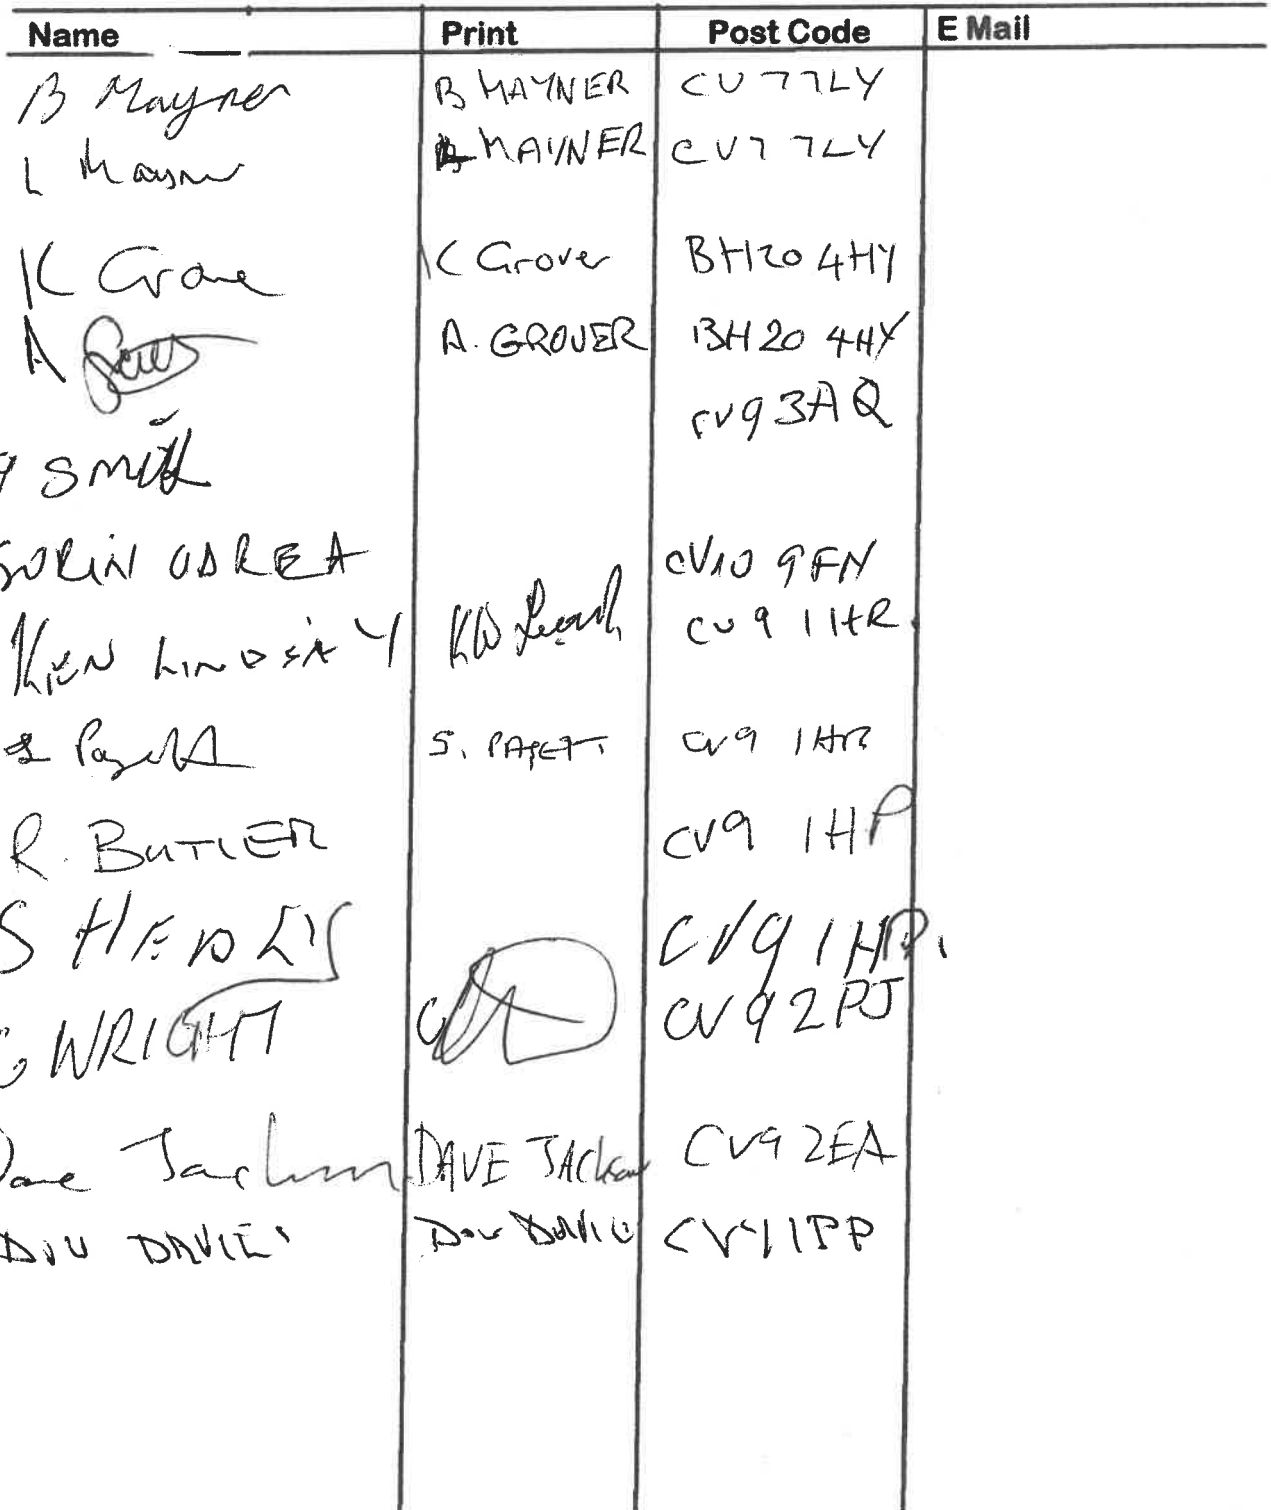 Name Print Post Code E Mail
B Mayner B MAYNER CV7 7LY
L Mayner MAYNER CV7 7LY
K Grover K Grover BH20 4HY
A A. GROVER BH20 4HY
CV9 3AQ
SMITH
SORIN UDREA CV10 9FN
KEN LINDSAY CV9 1HR
S. PAGETT CV9 1HR
R. BUTLER CV9 1HP
S HEDLEY CV9 1HP.
G WRIGHT CV9 2PJ
Dave Jackson DAVE JACkson CV9 2EA
DAVIES 1PP